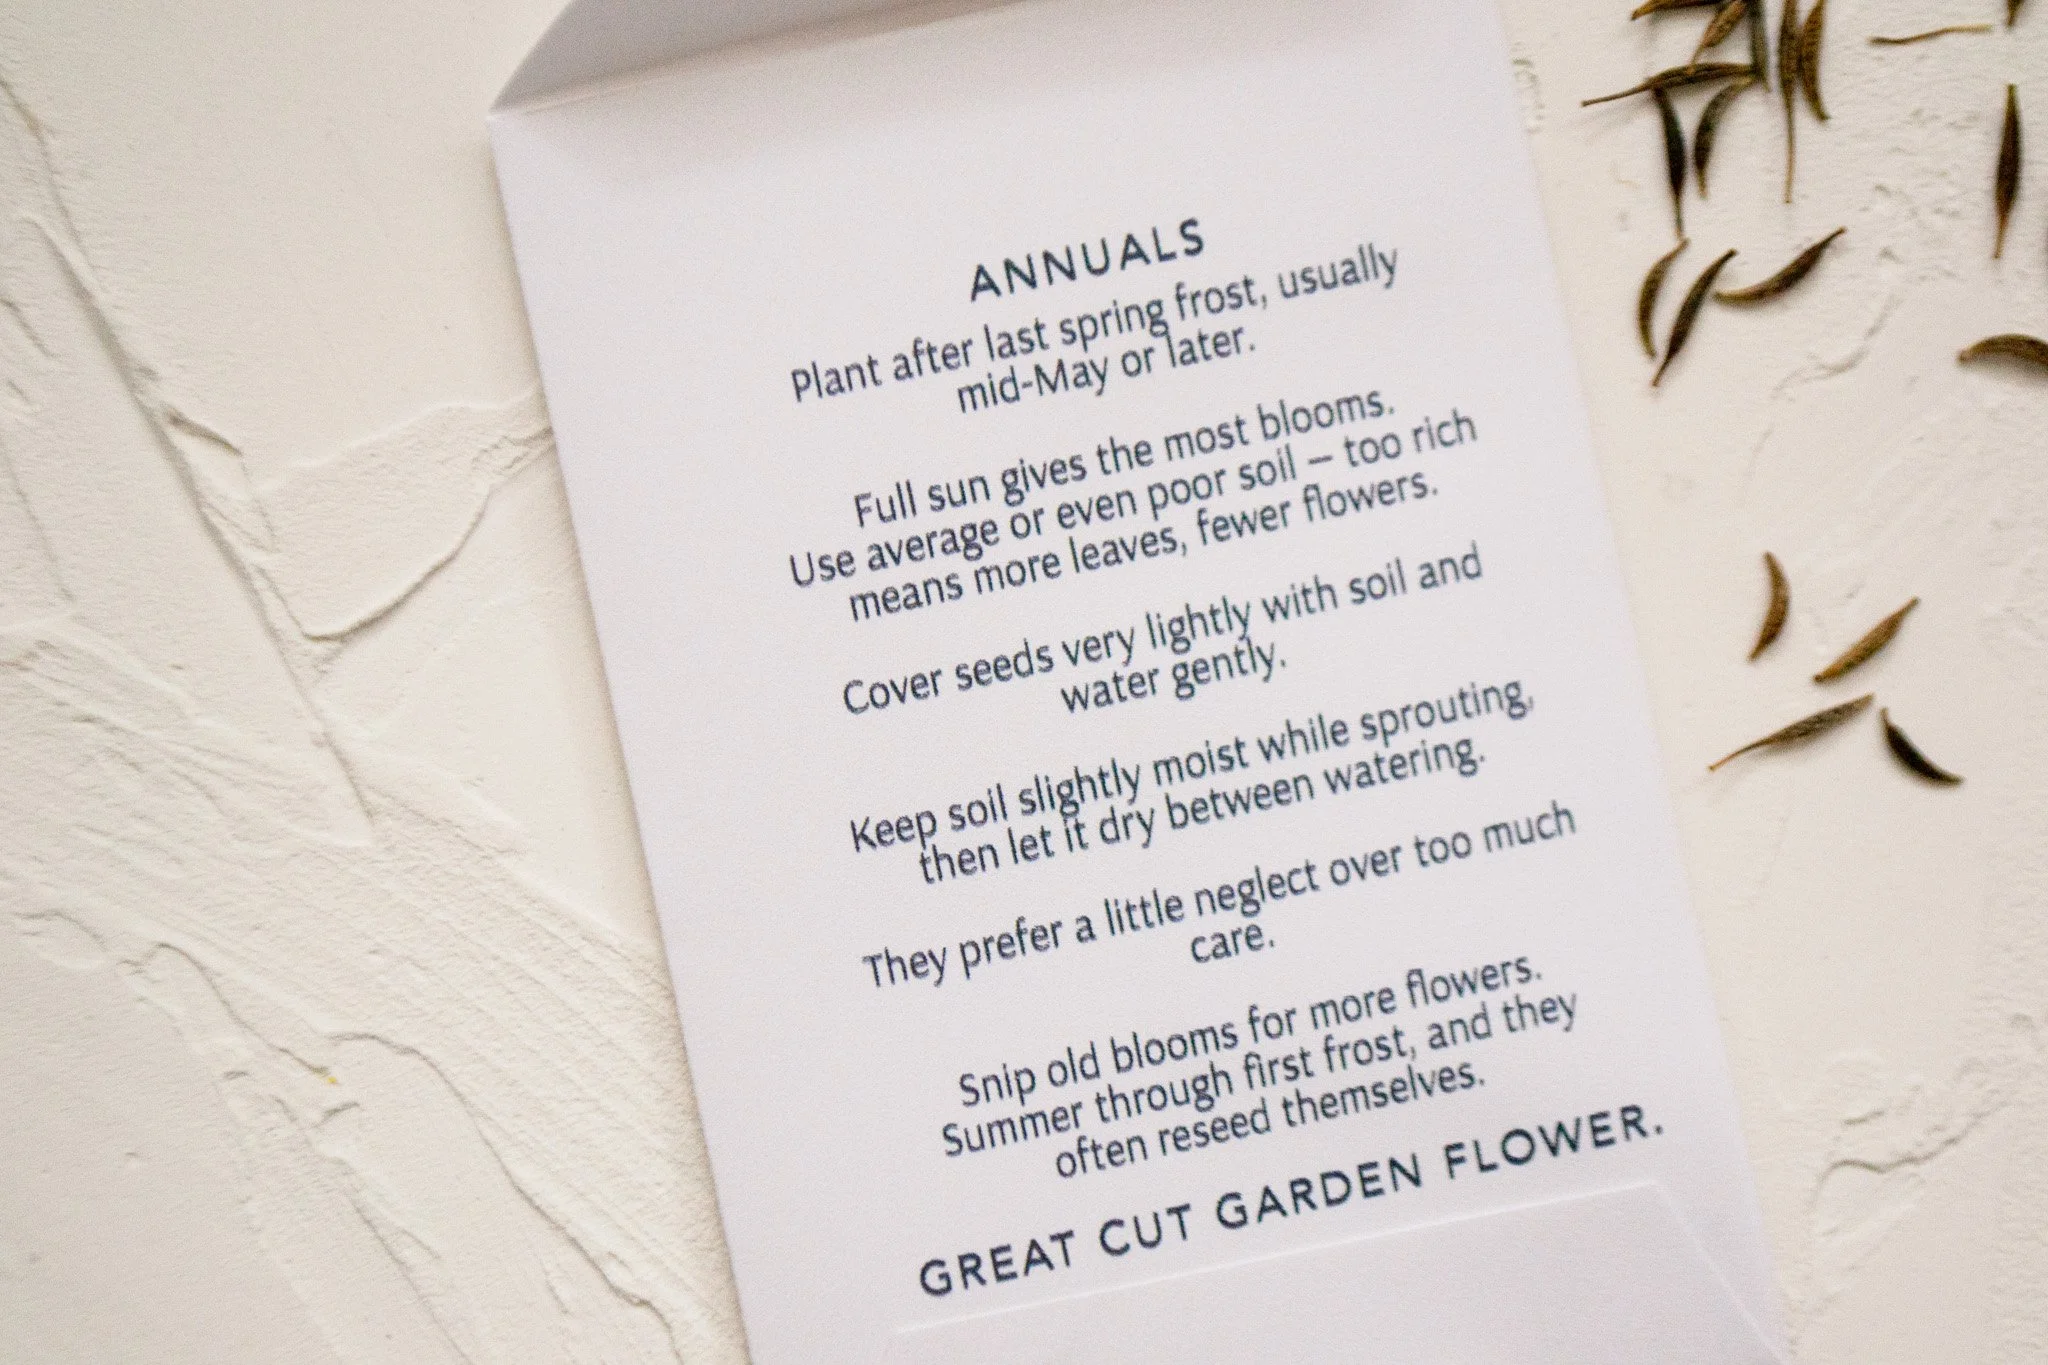 ANNUALS
Plant after last spring frost, usually
mid-May or later.
Full sun gives the most blooms.
Use average or even poor soil – too rich
means more leaves, fewer flowers.
Cover seeds very lightly with soil and
water gently.
Keep soil slightly moist while sprouting,
then let it dry between watering.
They prefer a little neglect over too much
care.
Snip old blooms for more flowers.
Summer through first frost, and they
often reseed themselves.
GREAT CUT GARDEN FLOWER.